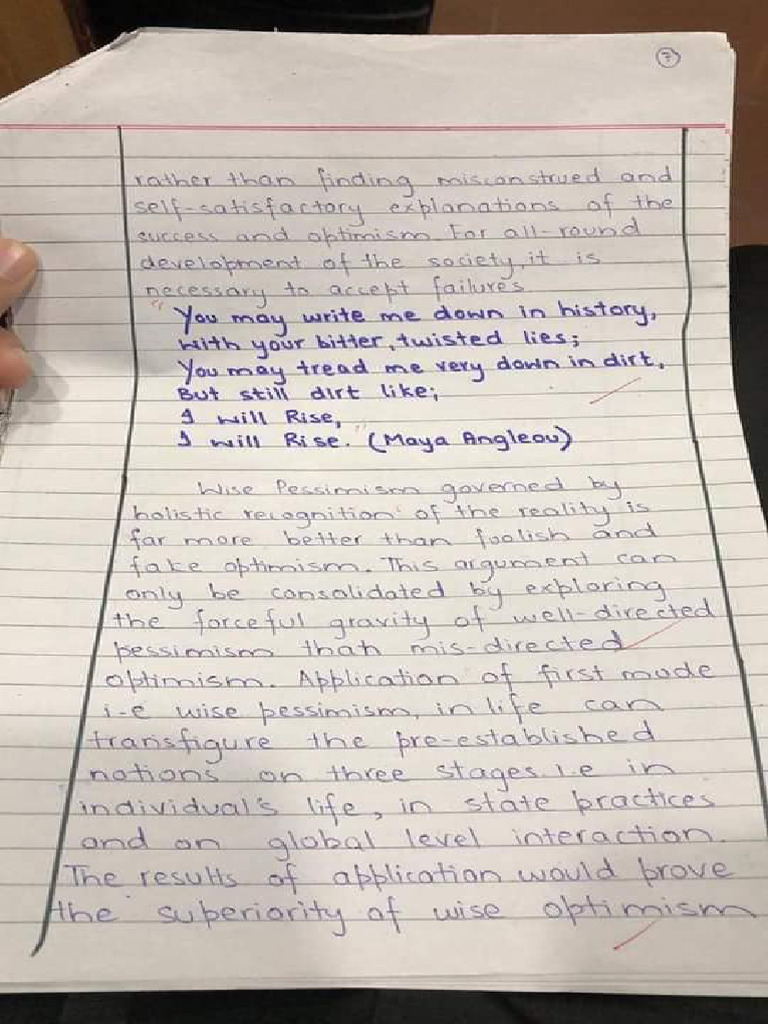 7
rather than finding misconstrued and
self-satisfactory explanations of the
success and optimism. For all-round
development of the society, it is
necessary to accept failures
"You may write me down in history,
with your bitter, twisted lies;
You may tread me very down in dirt,
But still dirt like;
I will Rise,
I will Rise." (Maya Angleou)
Wise Pessimism governed by
holistic recognition of the reality is
far more better than foolish and
fake optimism. This argument can
only be consalidated by exploring
the forceful gravity of well-directed
pessimism than mis-directed
optimism. Application of first mode
i-e wise pessimism, in life can
transfigure the pre-established
notions on three stages i.e in
individual's life, in state practices
and on global level interaction.
The results of application would prove
the superiority of wise optimism